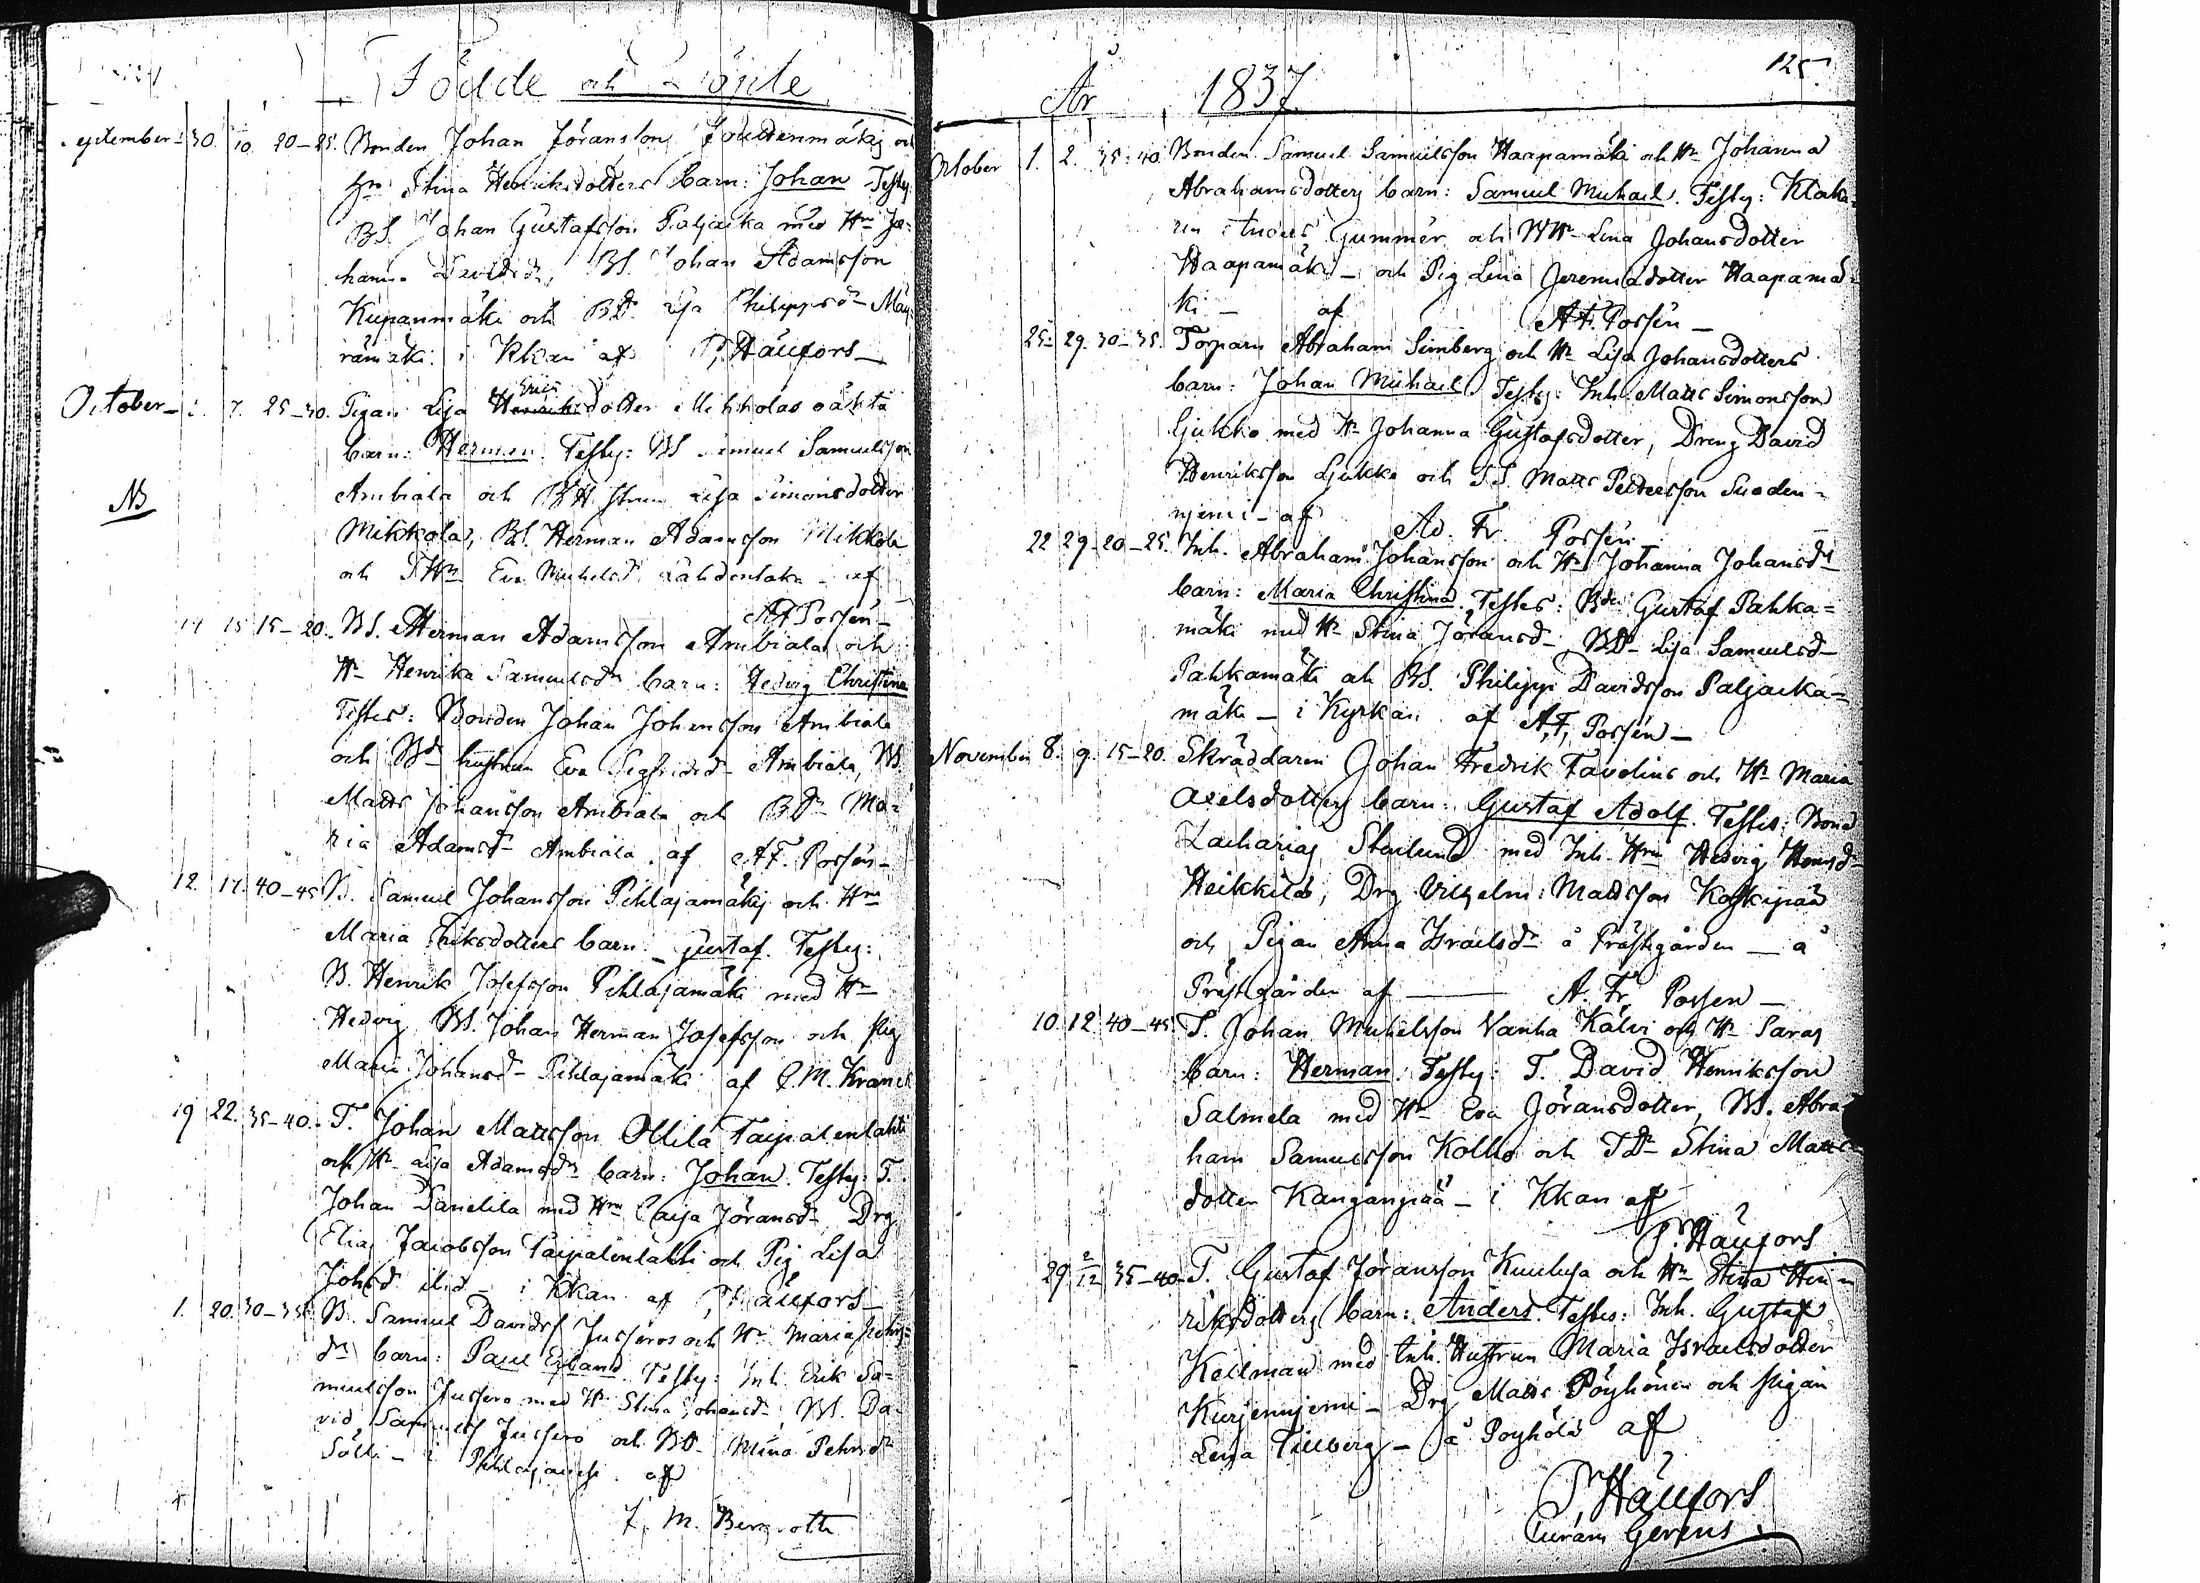 Födde och Döpte
September 30. 10. 20–25. Bonden Johan Jöransson och
Hn Stina Henriksdotters barn: Johan Testes
BS. Johan Gustafsson med Hn Jo-
hanna Davidsdr, BS. Johan Adamsson
Kupanmäki och BDr Lisa Philippsdr
i Kkan af P. Häufors
October – 7. 25–30. Pigan Lisa Henriks Erics dotter
barn: Herman. Testes: BS Samuel Samuelsson
Ambiala och Lisa Simonsdotter
Mikkola, BS. Herman Adamsson Mikkola
NB
och THn Eva Michelsdr – af
AF Possén –
14 15 15–20. BS. Herman Adamsson Ambiala och
Hn Henrika Samuelsdrs barn: Hedvig Christina
Testes: Bonden Johan Johansson Ambiala
och hustrun Eva Sigfridsdr Ambiala, BS.
Matts Johansson Ambiala och BDr Ma-
ria Adamsdr Ambiala. af A.F. Possén –
12. 17. 40–45 B. Samuel Johansson Pihlajamäki och Hns
Maria Eriksdotters barn – Gustaf. Testes:
B. Henrik Josefsson Pihlajamäki med Hn
Hedvig, BS. Johan Herman Josefsson och Pig
Maria Johansdr Pihlajamäki af C.M. Kranck
19 22. 35–40. T. Johan Mattsson Ollila Taipalenlahti
och Hn Caisa Adamsdrs barn: Johan. Testes: T.
Johan Danielila med Hn Caisa Jöransdr Drg
Elias Jacobsson Taipalenlahti och Pig Lisa
Johsdr – i Kkan af P. Häufors –
1. 20. 30–35. B. Samuel Davidss Jussero och Hn Maria Pehrs-
drs barn: Paul Testes: Inh. Erik Sa-
muelsson Jussero med Hn Stina Johansdr, BS. Da-
vid Samuelss Jussero och BD. Pehrsdr
– i af
J. M. Bergroth
År 1837 125
October 1. 2. 35–40 Bonden Samuel Samuelsson Haapamäki och Hn Johanna
Abrahamsdotters barn: Samuel Michael. Testes: Klocka-
ren Gummér och Lena Johansdotter
Haapamäki – och Pig Lena Jeremiadotter Haapamä-
ki – af A.F. Possén –
25 29. 30–35. Torparn Abraham Simberg och Hn Lisa Johansdotters
barn: Johan Michael. Testes: Inh. Matts Simonsson
Ljukko med Hn Johanna Gustafsdotter, Dreng David
Henriksson Ljukko och TS. Matts Petersson Suoden-
njemi – af Ad. Fr. Possén –
22 29 20–25. Inh. Abraham Johansson och Hn Johanna Johansdrs
barn: Maria Christina. Testes: Gustaf Pahka-
mäki med Hn Stina Jöransdr, BDr Lisa Samuelsdr
Pahkamäki och BS. Philipp Davidsson Paljacka-
mäki – i Kyrkan af A,F, Possén –
November 8. 9. 15–20. Skräddaren Johan Fredrik Favolins och Hn Maria
Axelsdotters barn: Gustaf Adolf. Testes: Bond
Zacharias med Inh. Hn Hedvig
Heikkilä, Drg Vilhelm Mattsson Koskipää
och Pigan Anna Israelsdr å Prästgården – å
Prästgården af — A. Fr. Possén –
10. 12 40–45 T. Johan Michelsson Vanha Kälvi och Hn Saras
barn: Herman. Testes: T. David Henriksson
Salmela med Hn Eva Jöransdotter, BS. Abra-
ham Samuelsson Kolho och TDr Stina Matts
dotter Kangaspää – i Kkan af
P. Häufors
29 2/12 35–40. T. Gustaf Jöransson Kuuluja och Hn Stina Hen-
riksdotters barn: Anders. Testes: Inh. Gustaf
Kellman med Inh. Hustrun Maria Israelsdotter
Kurjennjemi – Drg Matts Pöyhönen och Pigan
Lena Tillberg – å Pöyhölä af
P. Häufors
Curam Gerens.